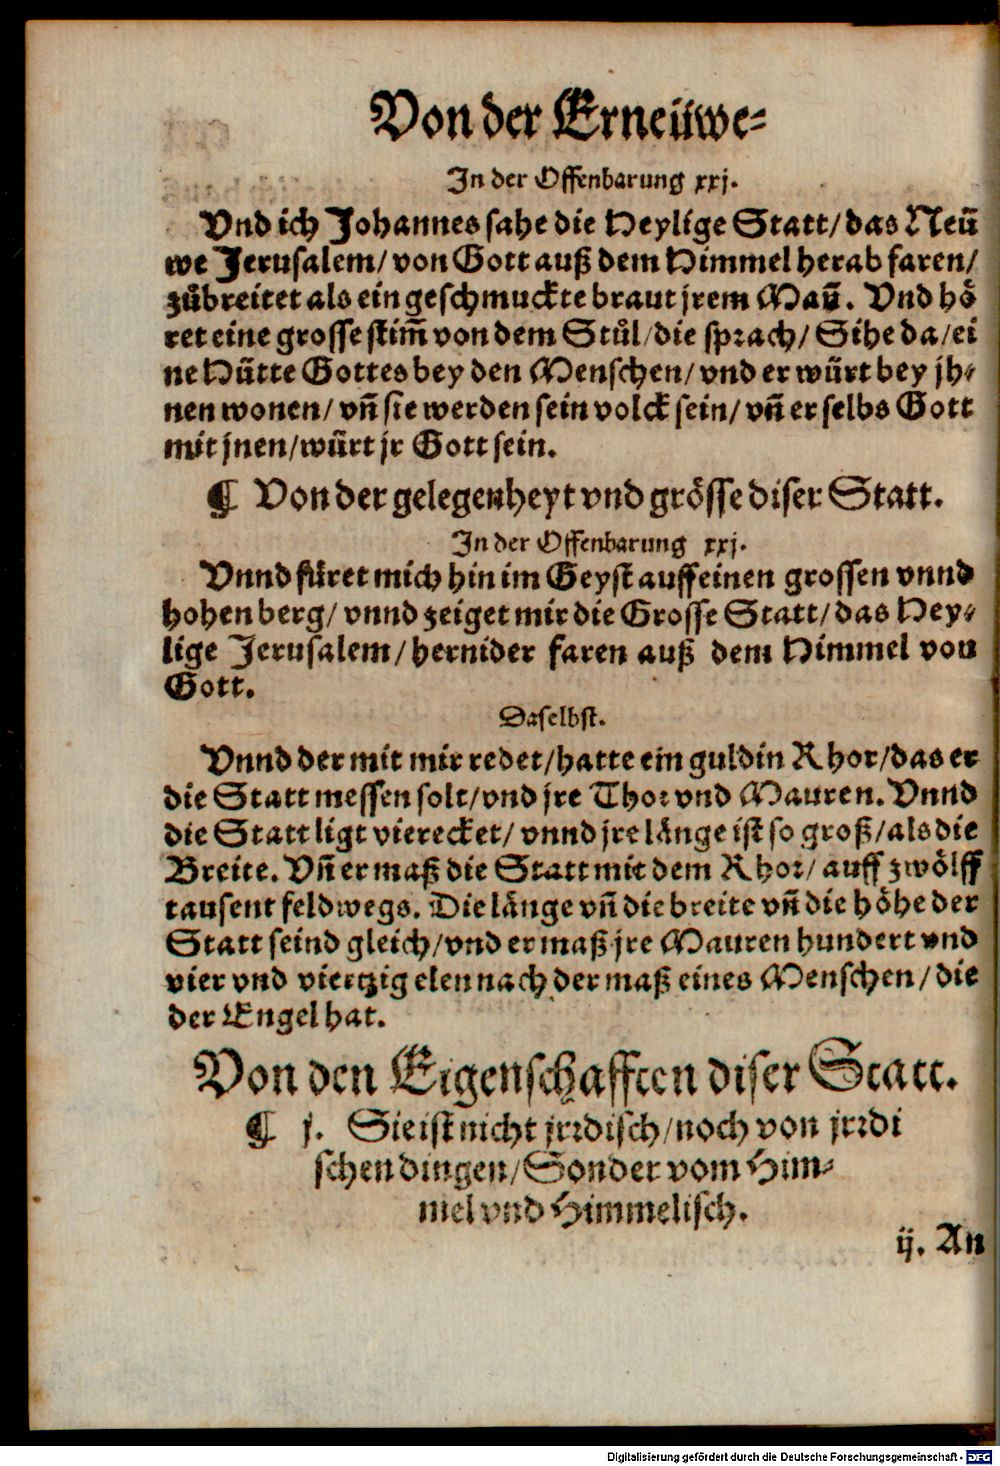 Von der Erneüwe⸗
In der Offenbarung xxj.
Vnd ich Johannes sahe die Heylige Statt/das Neũ
we Jerusalem/ von Gott auß dem Himmel herab faren/
zůbreitet als ein geschmuckte braut jrem Mañ. Vnd hö
ret eine grosse stim̃ von dem Stůl/die sprach/ Sihe da/ei
ne Hütte Gottes bey den Menschen/ vnd er würt bey jh⸗
nen wonen/ vñ sie werden sein volck sein/ vñ er selbs Gott
mit jnen/würt jr Gott sein.
¶ Von der gelegenheyt vnd grösse diser Statt.
In der Offenbarung xxj.
Vnnd füret mich hin im Geyst auff einen grossen vnnd
hohen berg/ vnnd zeiget mir die Grosse Statt/das Hey⸗
lige Jerusalem/hernider faren auß dem Himmel von
Gott.
Daselbst.
Vnnd der mit mir redet/hatte ein guldin Rhor/das er
die Statt messen solt/vnd jre Thor vnd Mauren. Vnnd
die Statt ligt vierecket/ vnnd jre länge ist so groß/als die
Breite. Vñ er maß die Statt mit dem Rhor/ auff zwölff
tausent feldwegs. Die länge vñ die breite vñ die höhe der
Statt seind gleich/vnd er maß jre Mauren hundert vnd
vier vnd viertzig elen nach der maß eines Menschen/die
der Engel hat.
Von den Eigenschafften diser Statt.
¶ j. Sie ist nicht jrrdisch/noch von jrrdi
schen dingen/Sonder vom Him⸗
mel vnd Himmelisch.
ij. An
Digitalisierung gefördert durch die Deutsche Forschungsgemeinschaft - DFG